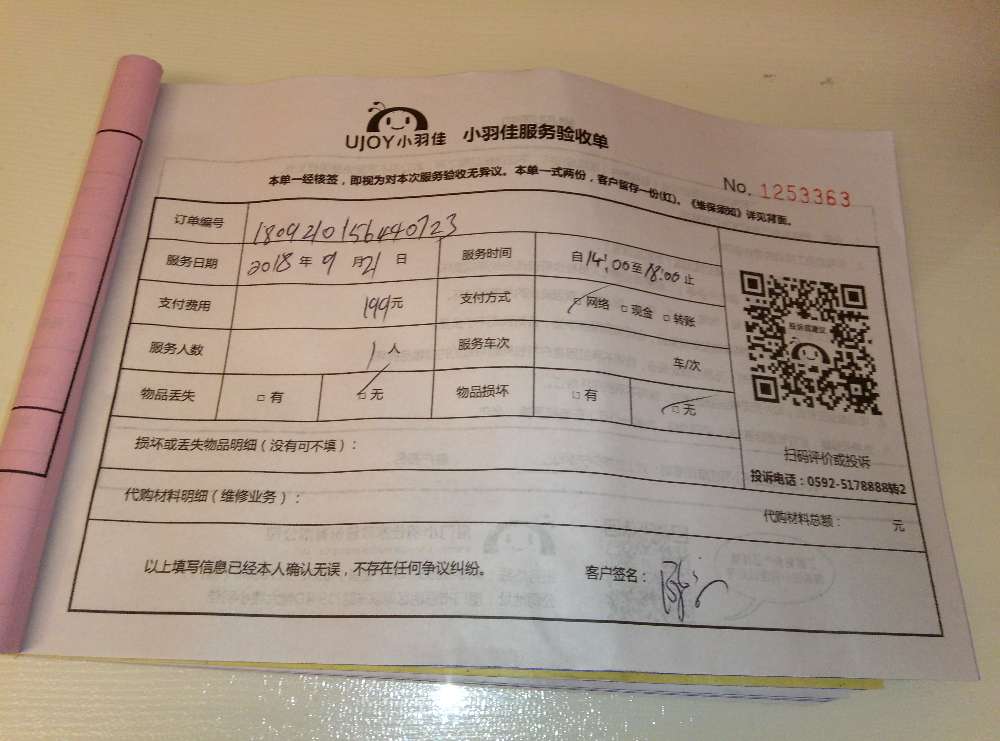 UJOY小羽佳 小羽佳服务验收单
本单一经核签，即视为对本次服务验收无异议。本单一式两份，客户留存一份(红)。《维保须知》详见背面。
No. 1253363
订单编号 1809210156440723
服务日期 2018 年 9 月 21 日 服务时间 自 14:00 至 18:00 止
支付费用 199 元 支付方式 □ 网络 □ 现金 □ 转账
服务人数 1 人 服务车次 车/次
物品丢失 □ 有 □ 无 物品损坏 □ 有 □ 无
投诉或建议
扫码评价或投诉
投诉电话：0592-5178888转2
损坏或丢失物品明细（没有可不填）：
代购材料明细（维修业务）： 代购材料总额： 元
以上填写信息已经本人确认无误，不存在任何争议纠纷。 客户签名：